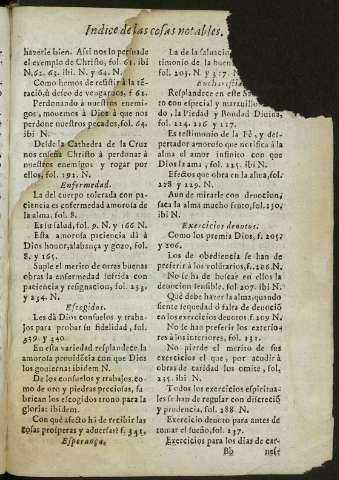 Indice de las cosas notables.
hazerle bien. Assi nos lo persuade
el exemplo de Christo, fol. 61. ibi
N. 62. 63. ibi N. y 64. N.
Como hemos de resistir à la tē-
taciō, à deseo de vengarnos. f. 62.
Perdonando à nuestros enemi-
gos, mouemos à Dios à que nos
perdone nuestros pecados, fol. 64.
ibi N.
Desde la Cathedra de la Cruz
nos enseña Christo à perdonar à
nuestros enemigos y rogar por
ellos, fol. 192. N.
Enfermedad.
La del cuerpo tolerada con pa-
ciencia es enfermedad amorosa de
la alma. fol. 8.
Es su salud, fol. 9. N. y 166 N.
Esta amorosa paciencia dà à
Dios honor, alabança y gozo, fol.
8. y 165.
Suple el merito de otras buenas
obras la enfermedad sufrida con
paciencia y resignacion, fol. 233.
y 234. N.
Escogidos.
Les dà Dios consuelos y traba-
jos para probar su fidelidad, fol.
339. y 340.
En esta variedad resplandece la
amorosa prouidēcia con que Dios
los gouierna: ibidem N.
De los consuelos y trabajos, co-
mo de oro y piedras preciosas, fa-
brican los escogidos trono para la
gloria: ibidem.
Con què afecto hã de recibir las
cosas prosperas y aduersas? f. 341.
Esperança.
La de la saluacion
timonio de la buen
fol. 203. N. y 317. N
Eucharistia
Resplandece en este Sa
to con especial y marauillo
do, la Piedad y Bondad Diuina,
fol. 224. 226. y 227.
Es testimonio de la Fè, y des-
pertador amoroso que notifica à la
alma el amor infinito con que
Dios la ama, fol. 225. ibi N.
Efectos que obra en la alma, fol.
228. y 229. N.
Aun de mirarle con deuocion,
saca la alma mucho fruto, fol. 230.
ibi N.
Exercicios deuotos.
Como los premia Dios, f. 205.
y 206.
Los de obediencia se han de
preferir à los volũtarios, f. 286. N.
No se ha de buscar en ellos la
deuocion sensible. fol. 209. ibi N.
Què debe hazer la alma, quando
siente sequedad ò falta de deuociō
en los exercicios deuotos f. 209 N.
No se han preferir los exterio-
res à los interiores, fol. 231.
No pierde el merito de sus
exercicios el que, por acudir à
obras de caridad los omite, fol.
235. ibi N.
Todos los exercicios espiritua-
les se han de regular con discreciō
y prudencia, fol. 288. N.
Exercicio deuoto para antes de
tomar el sueño, fol. 237.
Exercicios para los dias de car-
Bb